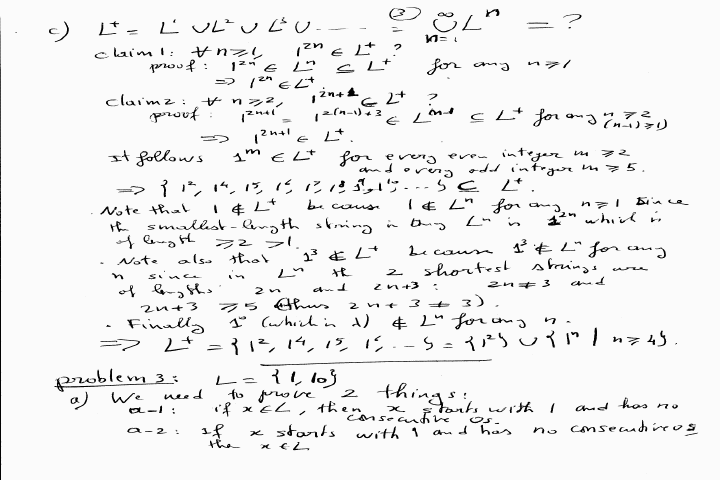 c) L⁺ = L¹ ∪ L² ∪ L³ ∪ ..... = ∞∪n=1 Lⁿ = ?
claim 1: ∀ n ≥ 1, 1²ⁿ ∈ L⁺ ?
proof: 1²ⁿ ∈ Lⁿ ⊆ L⁺ for any n ≥ 1
⇒ 1²ⁿ ∈ L⁺
claim 2: ∀ n ≥ 2, 1²ⁿ⁺¹ ∈ L⁺ ?
proof: 1²ⁿ⁺¹ = 1²⁽ⁿ⁻¹⁾⁺³ ∈ Lⁿ⁻¹ ⊆ L⁺ for any n ≥ 2
(n-1) ≥ 1)
⇒ 1²ⁿ⁺¹ ∈ L⁺.
It follows 1ᵐ ∈ L⁺ for every even integer m ≥ 2
and every odd integer m ≥ 5.
⇒ {1², 1⁴, 1⁵, 1⁶, 1⁷, 1⁸, 1⁹, ... } ⊆ L⁺.
. Note that 1 ∉ L⁺ because 1 ∉ Lⁿ for any n ≥ 1 since
the smallest-length string in any Lⁿ is 1²ⁿ which is
of length ≥ 2 > 1.
. Note also that 1³ ∉ L⁺ because 1³ ∉ Lⁿ for any
n since in Lⁿ the 2 shortest strings are
of lengths 2n and 2n+3 : 2n ≠ 3 and
2n+3 ≥ 5 (thus 2n+3 ≠ 3).
. Finally 1⁰ (which is λ) ∉ Lⁿ for any n.
⇒ L⁺ = {1², 1⁴, 1⁵, 1⁶, ... } = {1²} ∪ {1ⁿ | n ≥ 4}.
problem 3: L = {1, 10}
a) We need to prove 2 things:
a-1: if x ∈ L, then x starts with 1 and has no
consecutive 0s.
a-2: If x starts with 1 and has no consecutive 0s
the x ∈ L